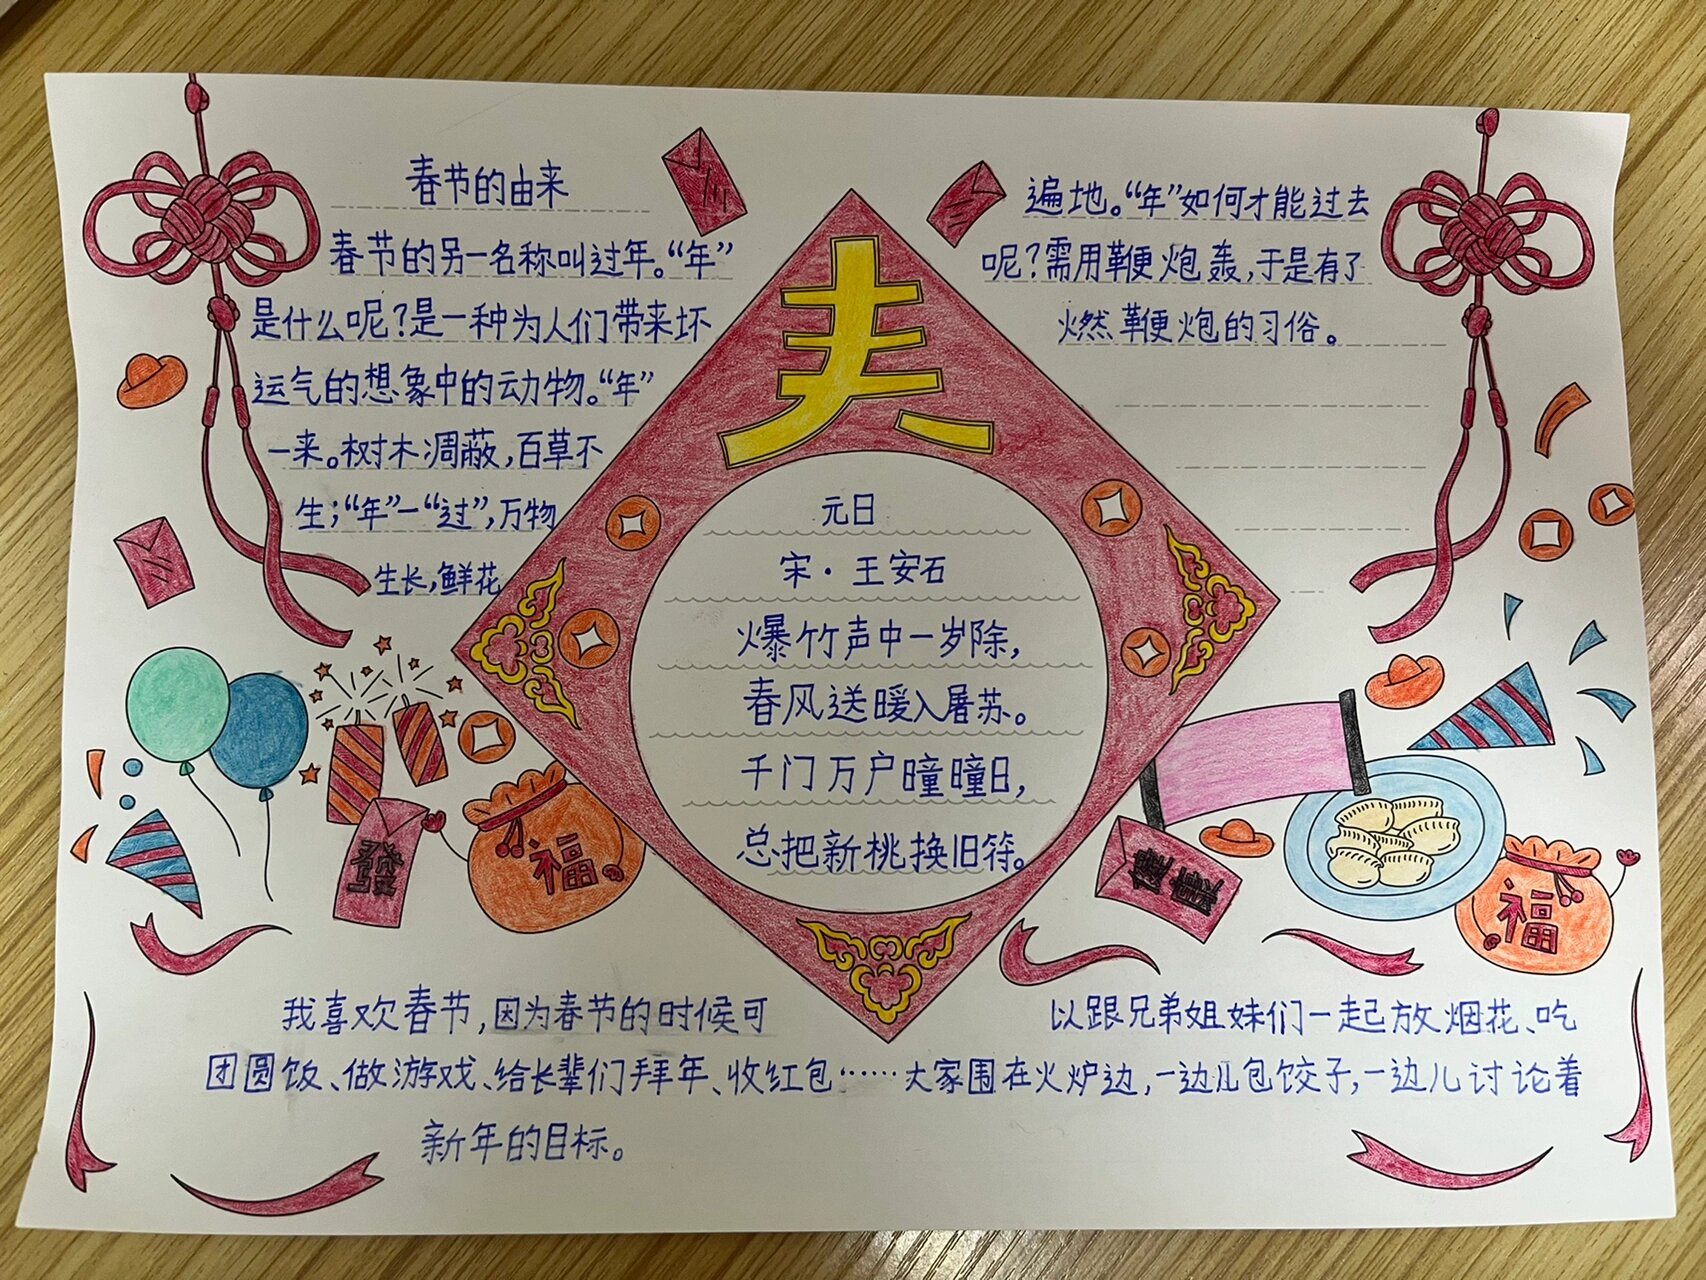 春节的由来
春节的另一名称叫过年。“年”
是什么呢?是一种为人们带来坏
运气的想象中的动物。“年”
一来。树木凋蔽,百草不
生;“年”一“过”,万物
生长,鲜花
遍地。“年”如何才能过去
呢?需用鞭炮轰,于是有了
燃鞭炮的习俗。
元日
宋·王安石
爆竹声中一岁除,
春风送暖入屠苏。
千门万户曈曈日,
总把新桃换旧符。
發
福
健康
福
我喜欢春节,因为春节的时候可以跟兄弟姐妹们一起放烟花、吃
团圆饭、做游戏、给长辈们拜年、收红包……大家围在火炉边,一边儿包饺子,一边儿讨论着
新年的目标。